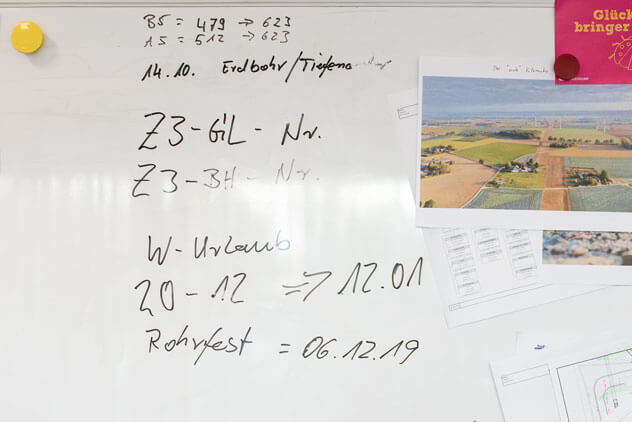 B5 = 479 → 623
A5 = 512 → 623
14.10. Erdbohr/Tiefen
Z3-GiL-Nr.
Z3-BH-Nr.
W-Urlaub
20-12 => 12.01
Rohrfest = 06.12.19
Glück
bringer